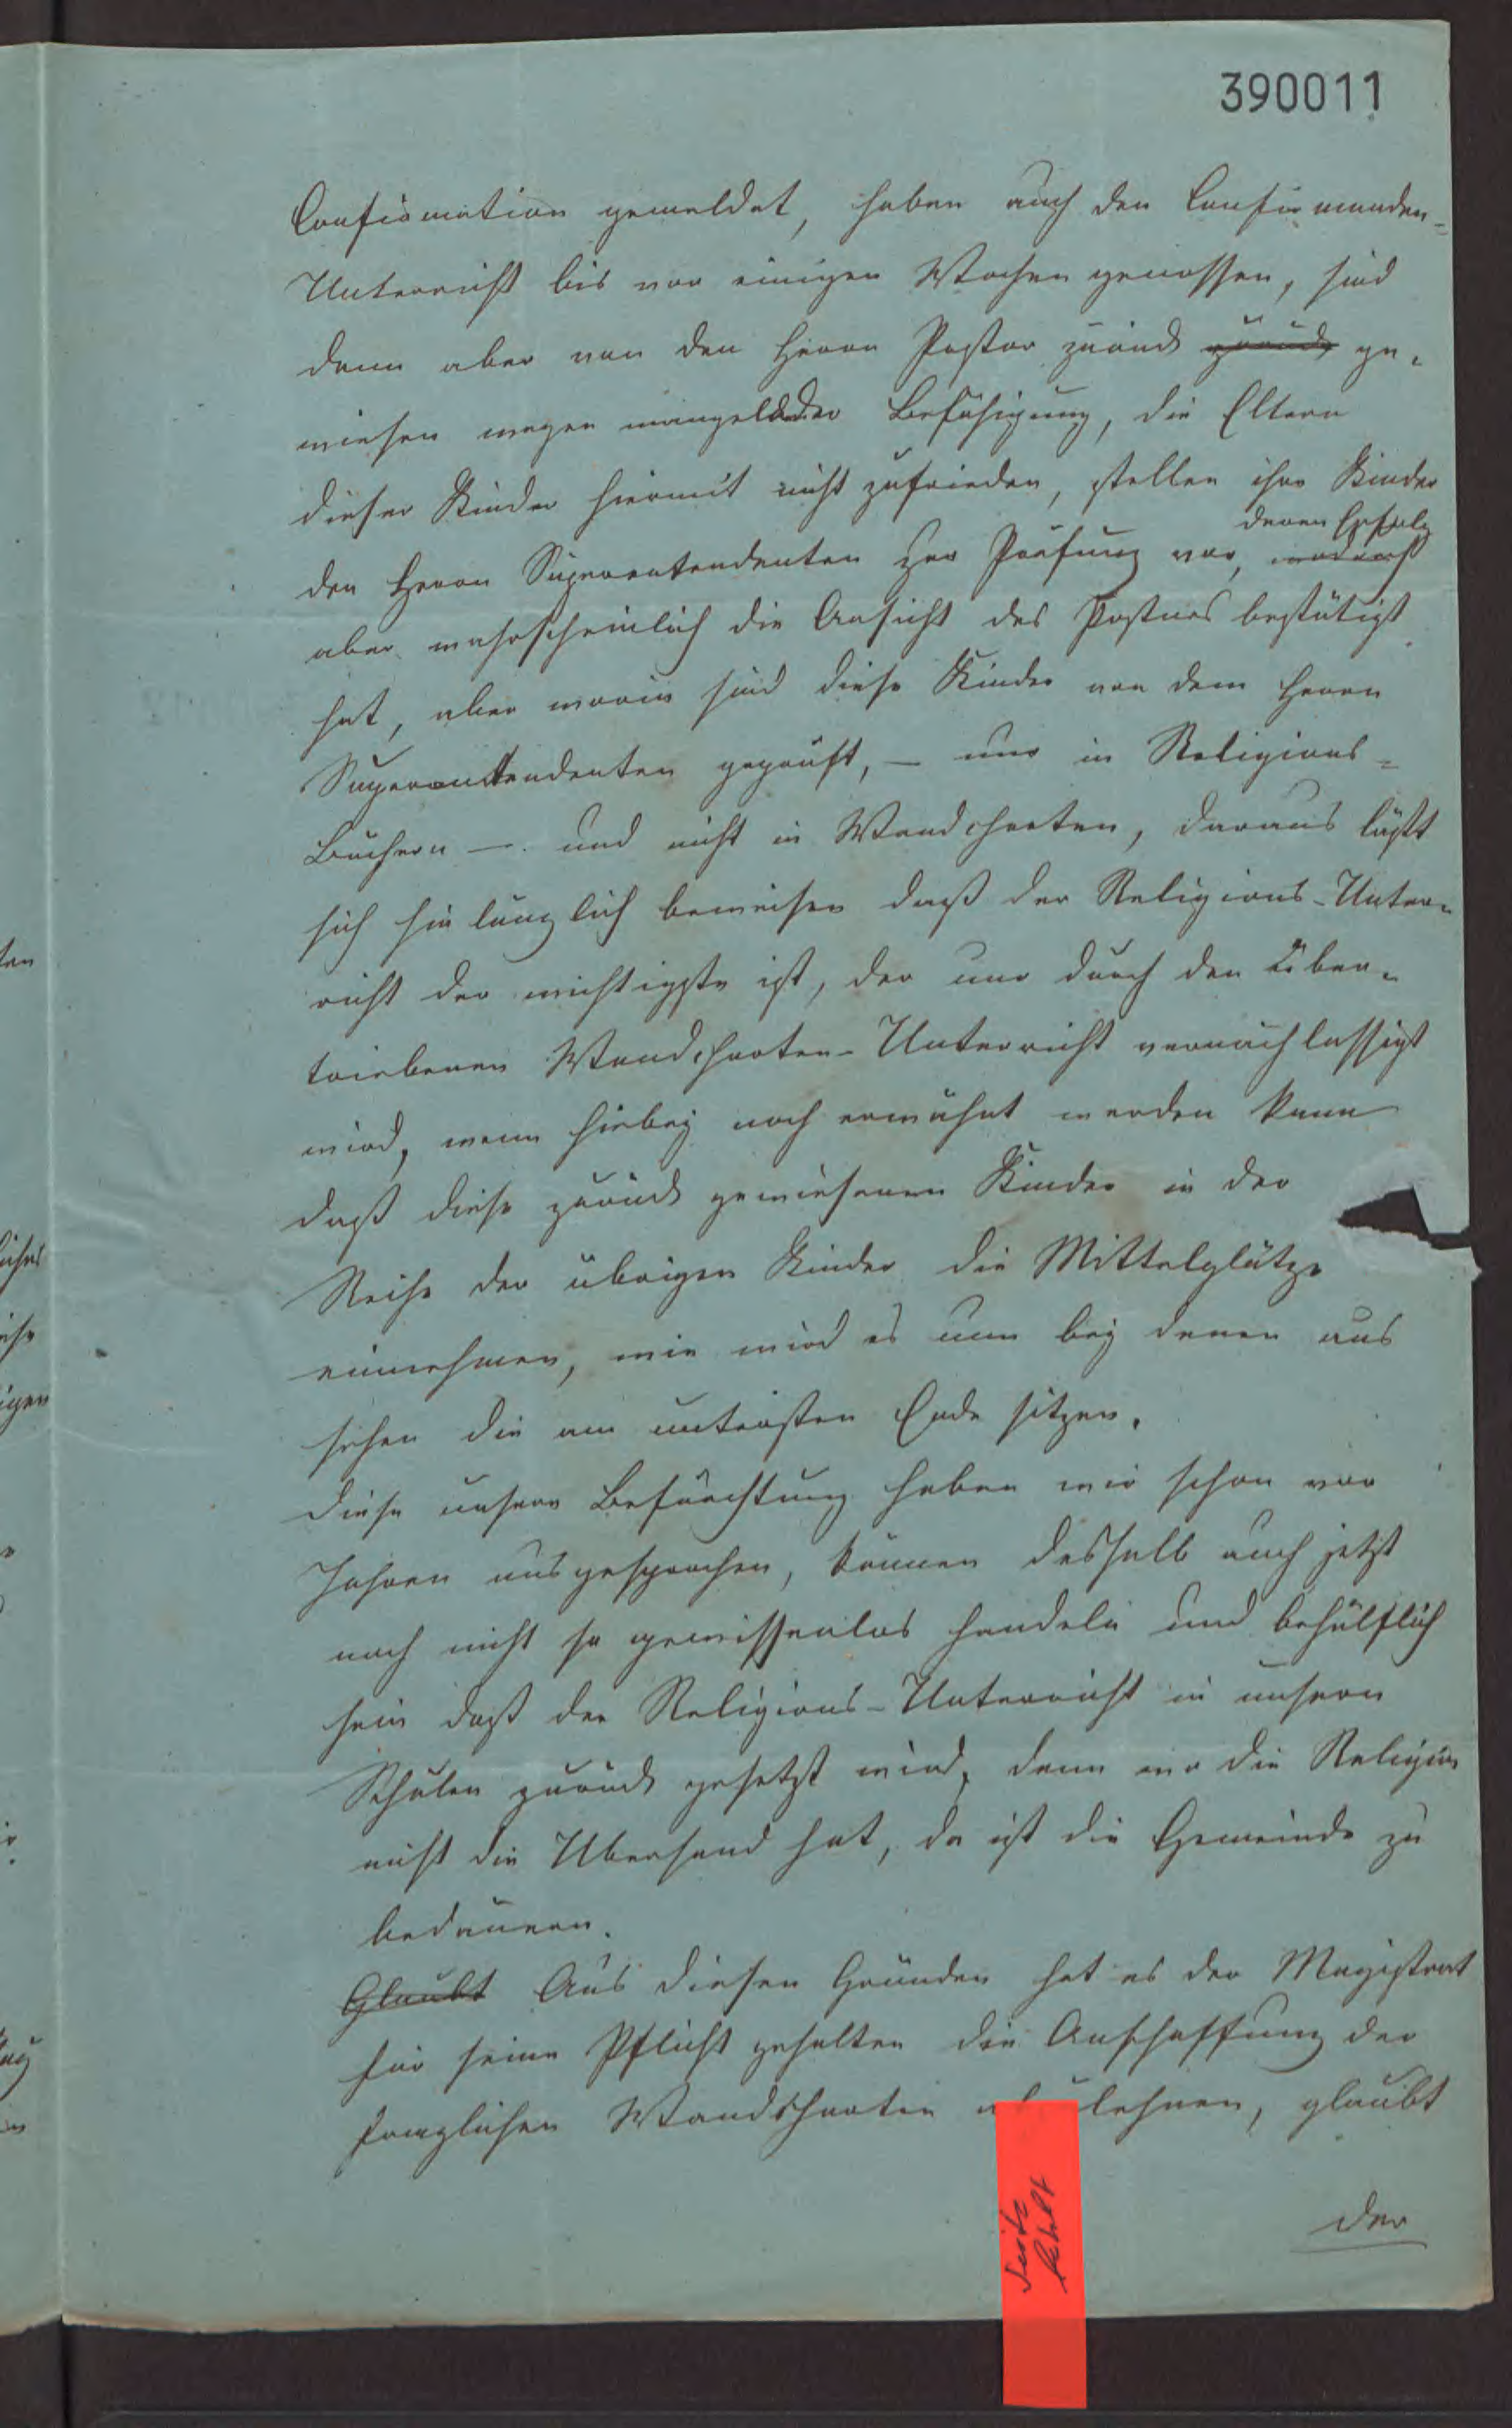 390011
Confirmation gemeldet, haben auch den Confirmanden=
Unterricht bis vor einigen Wochen genossen, sind
denn aber von den Herrn Pastor zurück zurück ge-
wiesen wegen mangelnder Befähigung, die Eltern
dieser Kinder hiermit nicht zufrieden, stellen ihre Kinder
deren Erfolg
den Herrn Superentendenten zur Prüfung vor,
aber wahrscheinlich die Ansicht des Pastors bestätigt
hat, aber worin sind diese Kinder von dem Herrn
Superentendenten geprüft, — nur in Religions=
Büchern —. und nicht in Wandcharten, daraus läßt
sich hinlänglich beweisen daß der Religions-Unter-
richt der wichtigste ist, der nur durch den über-
triebenen Wandcharten-Unterricht vernachlassigt
wird, wenn hiebey noch erwähnt werden kann
daß diese zurück gewiesenen Kinder in der
Reihe der übrigen Kinder die Mittelplätze
einnehmen, wie wird es nun bey denen aus
sehen die am untersten Ende sitzen.
Diese unsere Befürchtung haben wir schon vor
Jahren ausgesprochen, können deshalb auch jetzt
noch nicht so gewissenlos handeln und behülflich
sein daß der Religions-Unterricht in unsern
Schulen zurück gesetzt wird, denn wo die Religion
nicht die Uberhand hat, da ist die Gemeinde zu
bedauern.
Glaubt Aus diesen Gründen hat es der Magistrat
für seine Pflicht gehalten die Anschaffung der
fraglichen Wandcharten lehnen, glaubt
der
Seite
fehlt